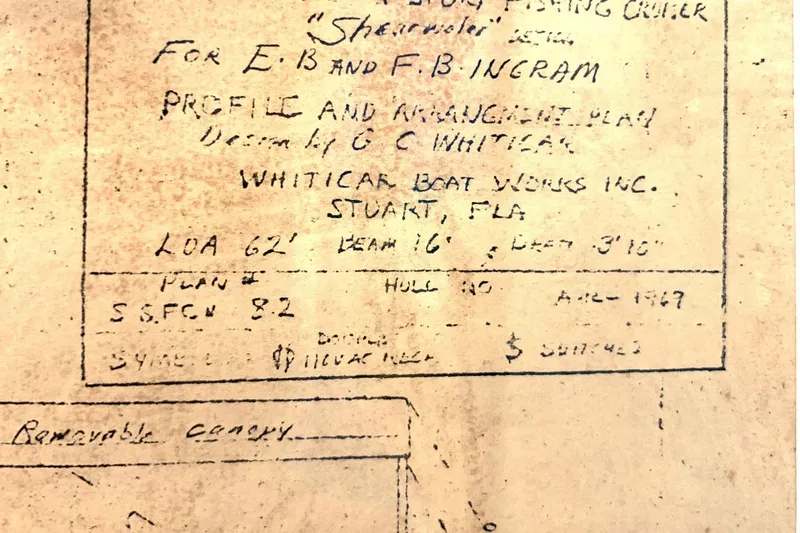 A SPORT FISHING CRUISER
"Shearwater"
FOR E. B AND F. B. INGRAM
PROFILE AND ARRANGMENT PLAN
Design by G C WHITICAR
WHITICAR BOAT WORKS INC.
STUART, FLA
LOA 62' BEAM 16' DRAFT 3'10"
PLAN # HULL NO
1967
S S.FCN 82
DOUBLE
$ SWITCHES
Removable canopy